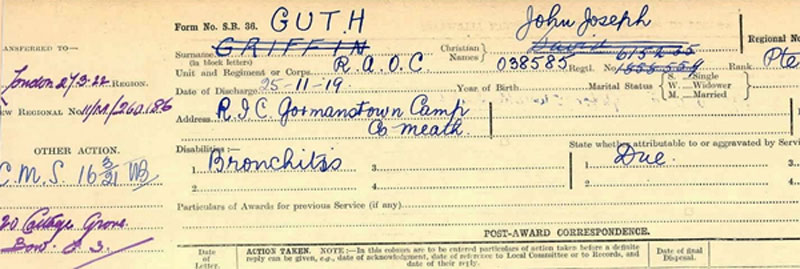 Form No. S.R. 36.
GUTH
John Joseph
Regional No
ANSFERRED TO—
Surname GRIFFIN
(in block letters)
Christian Names
David
Unit and Regiment or Corps R.A.O.C.
038585 Regtl. No.
Rank Pte
London 2/3.22 REGION.
Date of Discharge 25-11-19.
Year of Birth
Marital Status
S.—Single
W.—Widower
M.—Married
W REGIONAL NO.
Address R.I.C Gormanstown Camp
Co meath.
OTHER ACTION.
Disabilities :—
State whether attributable to or aggravated by Servi
1. Bronchitis 3.
1. Due. 3.
2. 4.
2. 4.
C.M.S. 16
20 Cottage Grove
Bow. E 3.
Particulars of Awards for previous Service (if any)
POST-AWARD CORRESPONDENCE.
Date of Letter.
ACTION TAKEN. NOTE:—In this column are to be entered particulars of action taken before a definite
reply can be given, e.g., date of acknowledgment, date of reference to Local Committee or to Records, and
date of their reply.
Date of final Disposal.